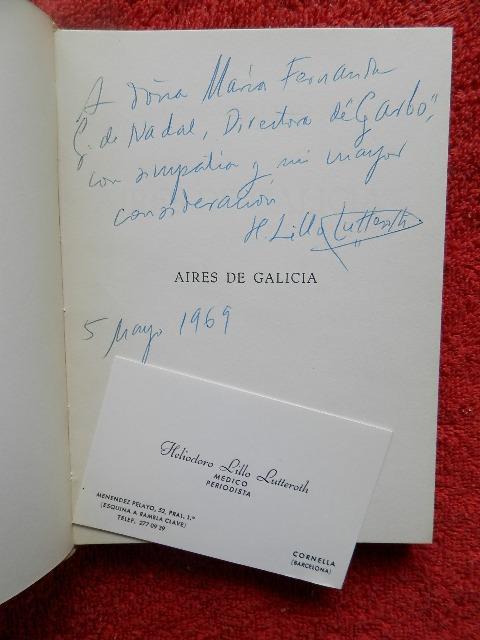 A doña María Fernanda
G. de Nadal, Directora de "Garbo",
con simpatía y mi mayor
consideración
H. Lillo Lutteroth
AIRES DE GALICIA
5 Mayo 1969
Heliodoro Lillo Lutteroth
MEDICO
PERIODISTA
MENENDEZ PELAYO, 52, PRAL. 1.ª
(ESQUINA A RAMBLA CLAVE)
TELEF. 277 09 39
CORNELLA
(BARCELONA)